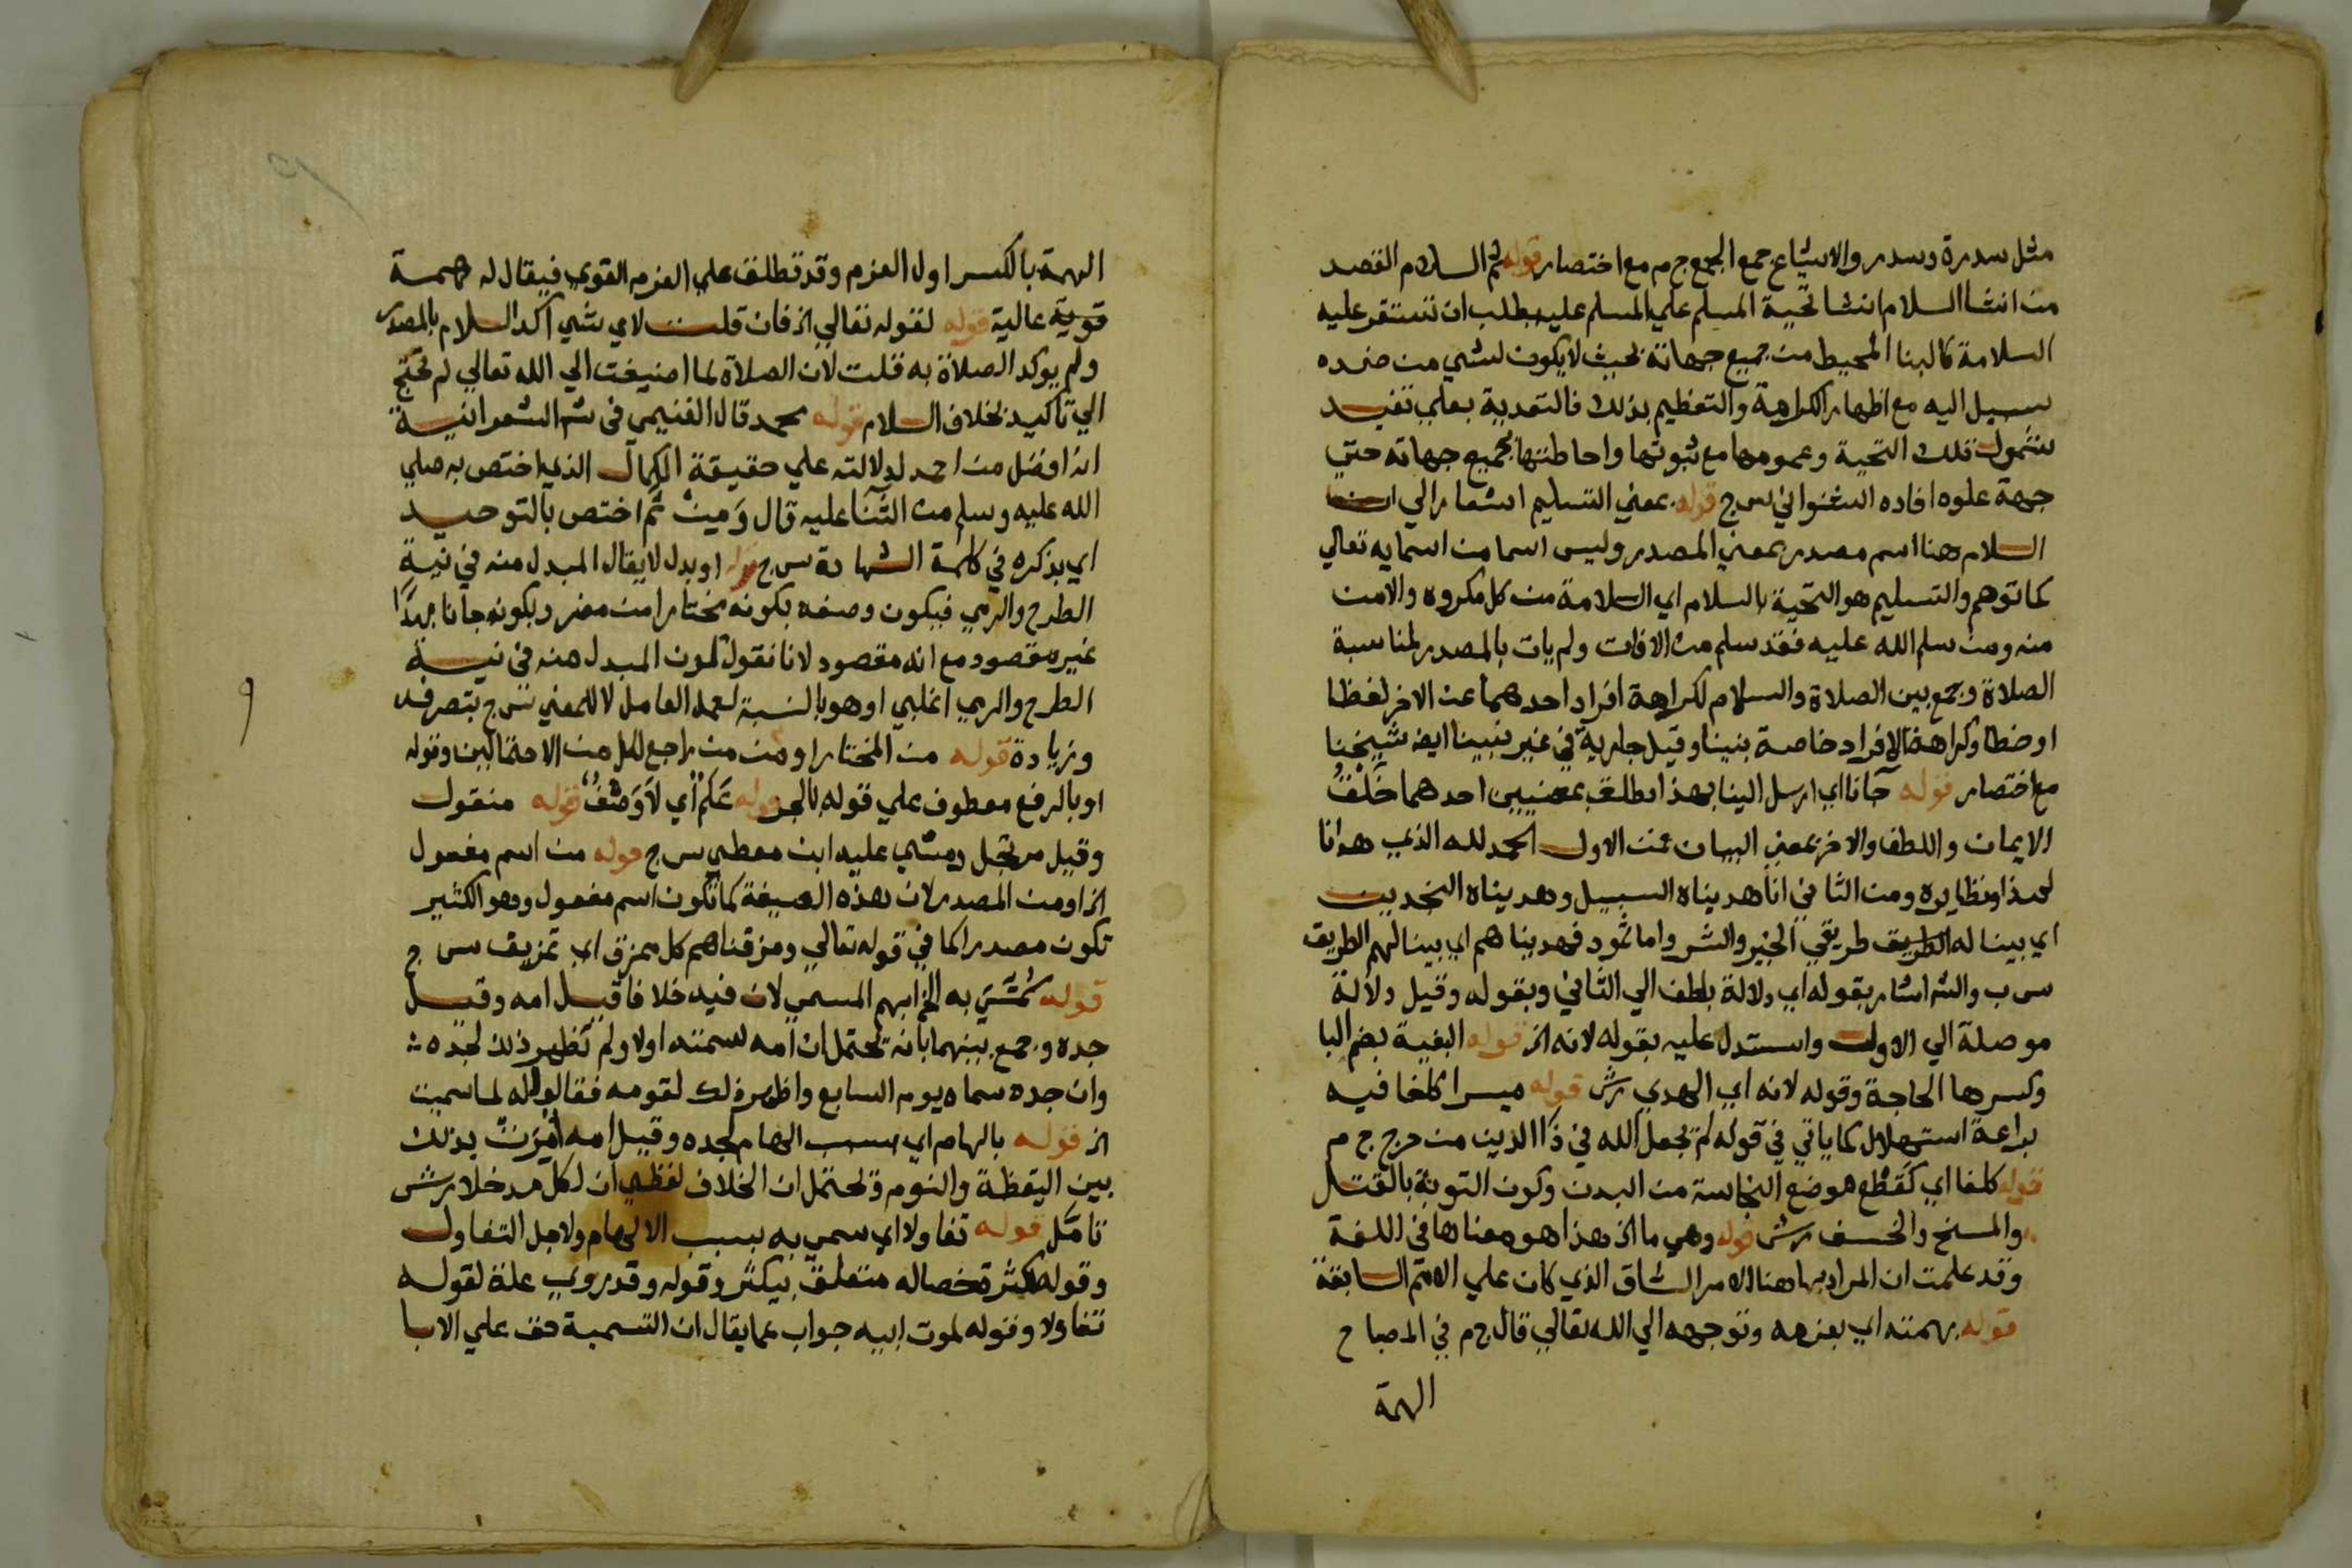 مثل سدرة وسدر والاشياع جمع الجمع ج م مع اختصار قوله ثم السلام القصد
من انشا السلام انشا تحية المسلم علي المسلم عليه بطلب ان تستقر عليه
السلامة كالبنا المحيط من جميع جهاته بحيث لا يكون لشي من ضده
سبيل اليه مع اظهار الكراهة والتعظيم بذلك فالتعدية بعلي تفيد
شمول تلك التحية وعمومها مع ثبوتها واحاطتها بجميع جهاته حتي
جهة علوه افاده الشنواني س ج قوله بمعني التسليم اشعار الي ان
السلام هنا اسم مصدر بمعني المصدر وليس اسما من اسمايه تعالي
كما توهم والتسليم هو التحية بالسلام اي السلامة من كل مكروه والامن
منه ومن سلم الله عليه فقد سلم من الافات ولم يات بالمصدر لمناسبة
الصلاة وجمع بين الصلاة والسلام لكراهة افراد احدهما عن الاخر لفظا
او خطا وكراهة الافراد خاصة بنبينا وقيل جارية في غير نبينا ايضا شيخنا
مع اختصار قوله جآنا اي ارسل الينا بهذا يطلق بمعنيين احدهما خَلْقُ
الايمان واللطف والاخر بمعني البيان فمن الاول الحمد لله الذي هدانا
لهذا ونظايره ومن الثاني انا هديناه السبيل وهديناه النجدين
اي بينا له الطريق طريقي الخير والشر واما ثمود فهديناهم اي بينا لهم الطريق
س ب والش اشار بقوله اي دلالة بلطف الي الثاني وبقوله وقيل دلالة
موصلة الي الاول واستدل عليه بقوله لانه الخ قوله البغية بضم البا
وكسرها الحاجة وقوله لانه اي الهدي رش قوله ميسرا كلفا فيه
براعة استهلال كما ياتي في قوله لم يجعل الله في ذا الدين من حرج ج م
قوله كلفا اي كقطع موضع النجاسة من البدن وكون التوبة بالقتل
والمسخ والخسف رش قوله وهي ما الخ هذا هو معناها في اللغة
وقد علمت ان المراد بها هنا الامر الشاق الذي كان علي الامم السابقة
قوله بهمته اي بعزمه وتوجهه الي الله تعالي قال ج م في المصباح
الهمة
الهمة بالكسر اول العزم وقد تطلق علي العزم القوي فيقال له همة
قوية عالية قوله لقوله تعالي الخ فان قلت لاي شي اكد السلام بالمصدر
ولم يوكد الصلاة به قلت لان الصلاة لما اضيفت الي الله تعالي لم تحتج
الي تاكيد بخلاف السلام قوله محمد قال الغنيمي في ش الشعرانية
انه افضل من احمد لدلالته علي حقيقة الكمال الذي اختص به صلي
الله عليه وسلم من الثنآ عليه قال وَمِنْ ثَم اختص بالتوحيد
اي بذكره في كلمة الشهادة س ج قوله او بدل لا يقال المبدل منه في نية
الطرح والرمي فيكون وصفه بكونه مختارا من مضر وبكونه جآنا بهذا
غير مقصود مع انه مقصود لانا نقول كون المبدل منه في نية
الطرح والرمي اغلبي او هو بالنسبة لعمل العامل لا للمعني س ج بتصرف
وزيادة قوله من المختار او من من راجع لكل من الاحتمالين وقوله
او بالرفع معطوف علي قوله بالجر قوله عَلَمٌ أي لا وَصْفٌ قوله منقول
وقيل مرتجل ومشي عليه ابن معطي س ج قوله من اسم مفعول
الخ او من المصدر لان هذه الصيغة كما تكون اسم مفعول وهو الكثير
تكون مصدرا كما في قوله تعالي ومزقناهم كل ممزق اي تمزيق س ج
قوله سُمِّيَ به الخ ابهم المسمي لان فيه خلافا قيل امه وقيل
جده وجمع بينهما بانه يحتمل ان امه سمته اولا ولم تظهر ذلك لجده
وان جده سماه يوم السابع واظهر ذلك لقومه فقالوا له لما سميت
الخ قوله بالهام اي بسبب الهام لجده وقيل امه أُمِرَتْ بذلك
بين اليقظة والنوم ويحتمل ان الخلاف لفظي ان لكل مدخلا رش
تامّل قوله تفاولا اي سمي به بسبب الالهام ولاجل التفاول
وقوله لكثرة خصاله متعلق بيكثر وقوله وقد روي علة لقوله
تفاولا وقوله لموت ابيه جواب عما يقال ان التسمية حق علي الابا